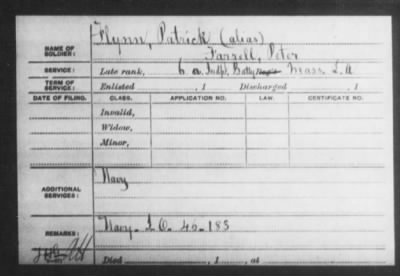 Flynn, Patrick (alias)
NAME OF SOLDIER: Farrell, Peter
SERVICE: Late rank, 6 Indpt. Batty Mass. L A
TERM OF SERVICE: Enlisted , 1 Discharged , 1
DATE OF FILING. CLASS. APPLICATION NO. LAW. CERTIFICATE NO.
Invalid,
Widow,
Minor,
ADDITIONAL SERVICES: Navy
REMARKS: Navy. I.O. 40-183
Died , 1 , at